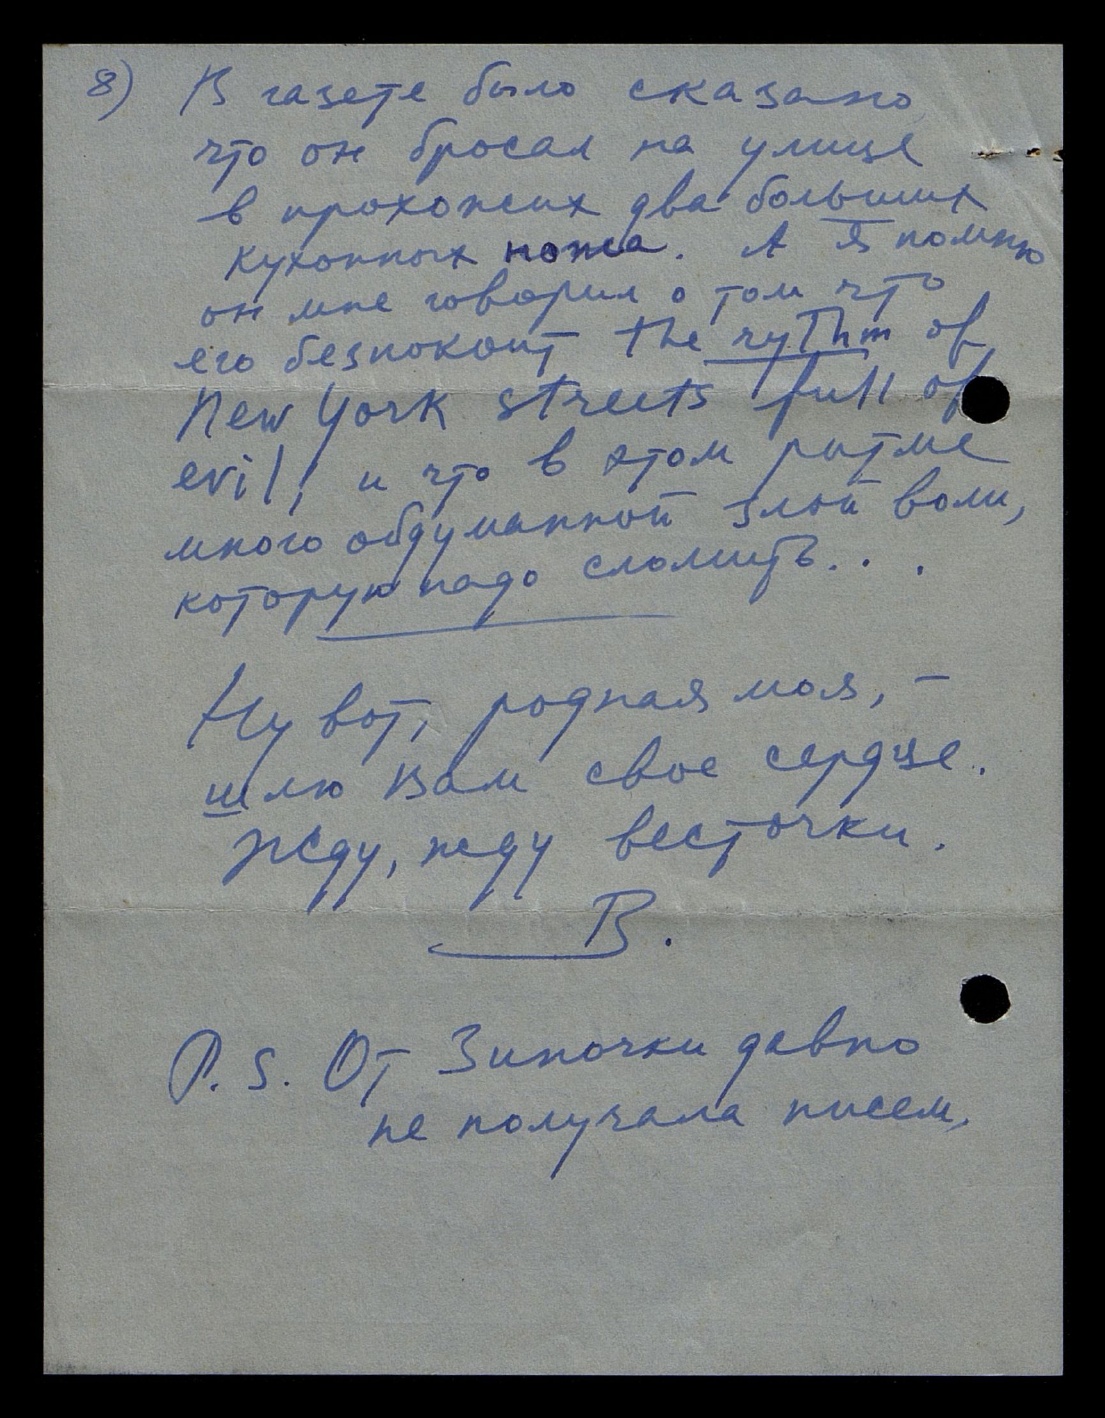 8) В газете было сказано
что он бросал на улице
в прохожих два больших
кухонных ножа. А я помню
он мне говорил о том что
его безпокоит the rythm of
New York streets full of
evil, и что в этом ритме
много обдуманной злой воли,
которую надо сломить...
Ну вот, родная моя, –
шлю Вам свое сердце.
Жду, жду весточки.
В.
P.S. От Зиночки давно
не получала писем.